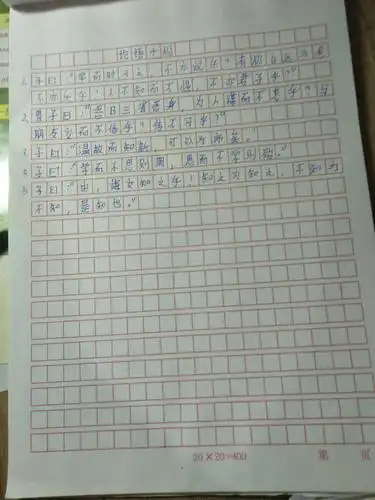 论语十则
1. 子曰:"学而时习之,不亦说乎?有朋自远方来
不亦乐乎?人不知而不愠,不亦君子乎?"
2. 曾子曰:"吾日三省吾身,为人谋而不忠乎?与
朋友交而不信乎?传不习乎?"
3. 子曰:"温故而知新,可以为师矣。"
4. 子曰:"学而不思则罔,思而不学则殆。"
5. 子曰:"由,诲女知之乎!知之为知之,不知为
不知,是知也。"
20×20=400
第 页